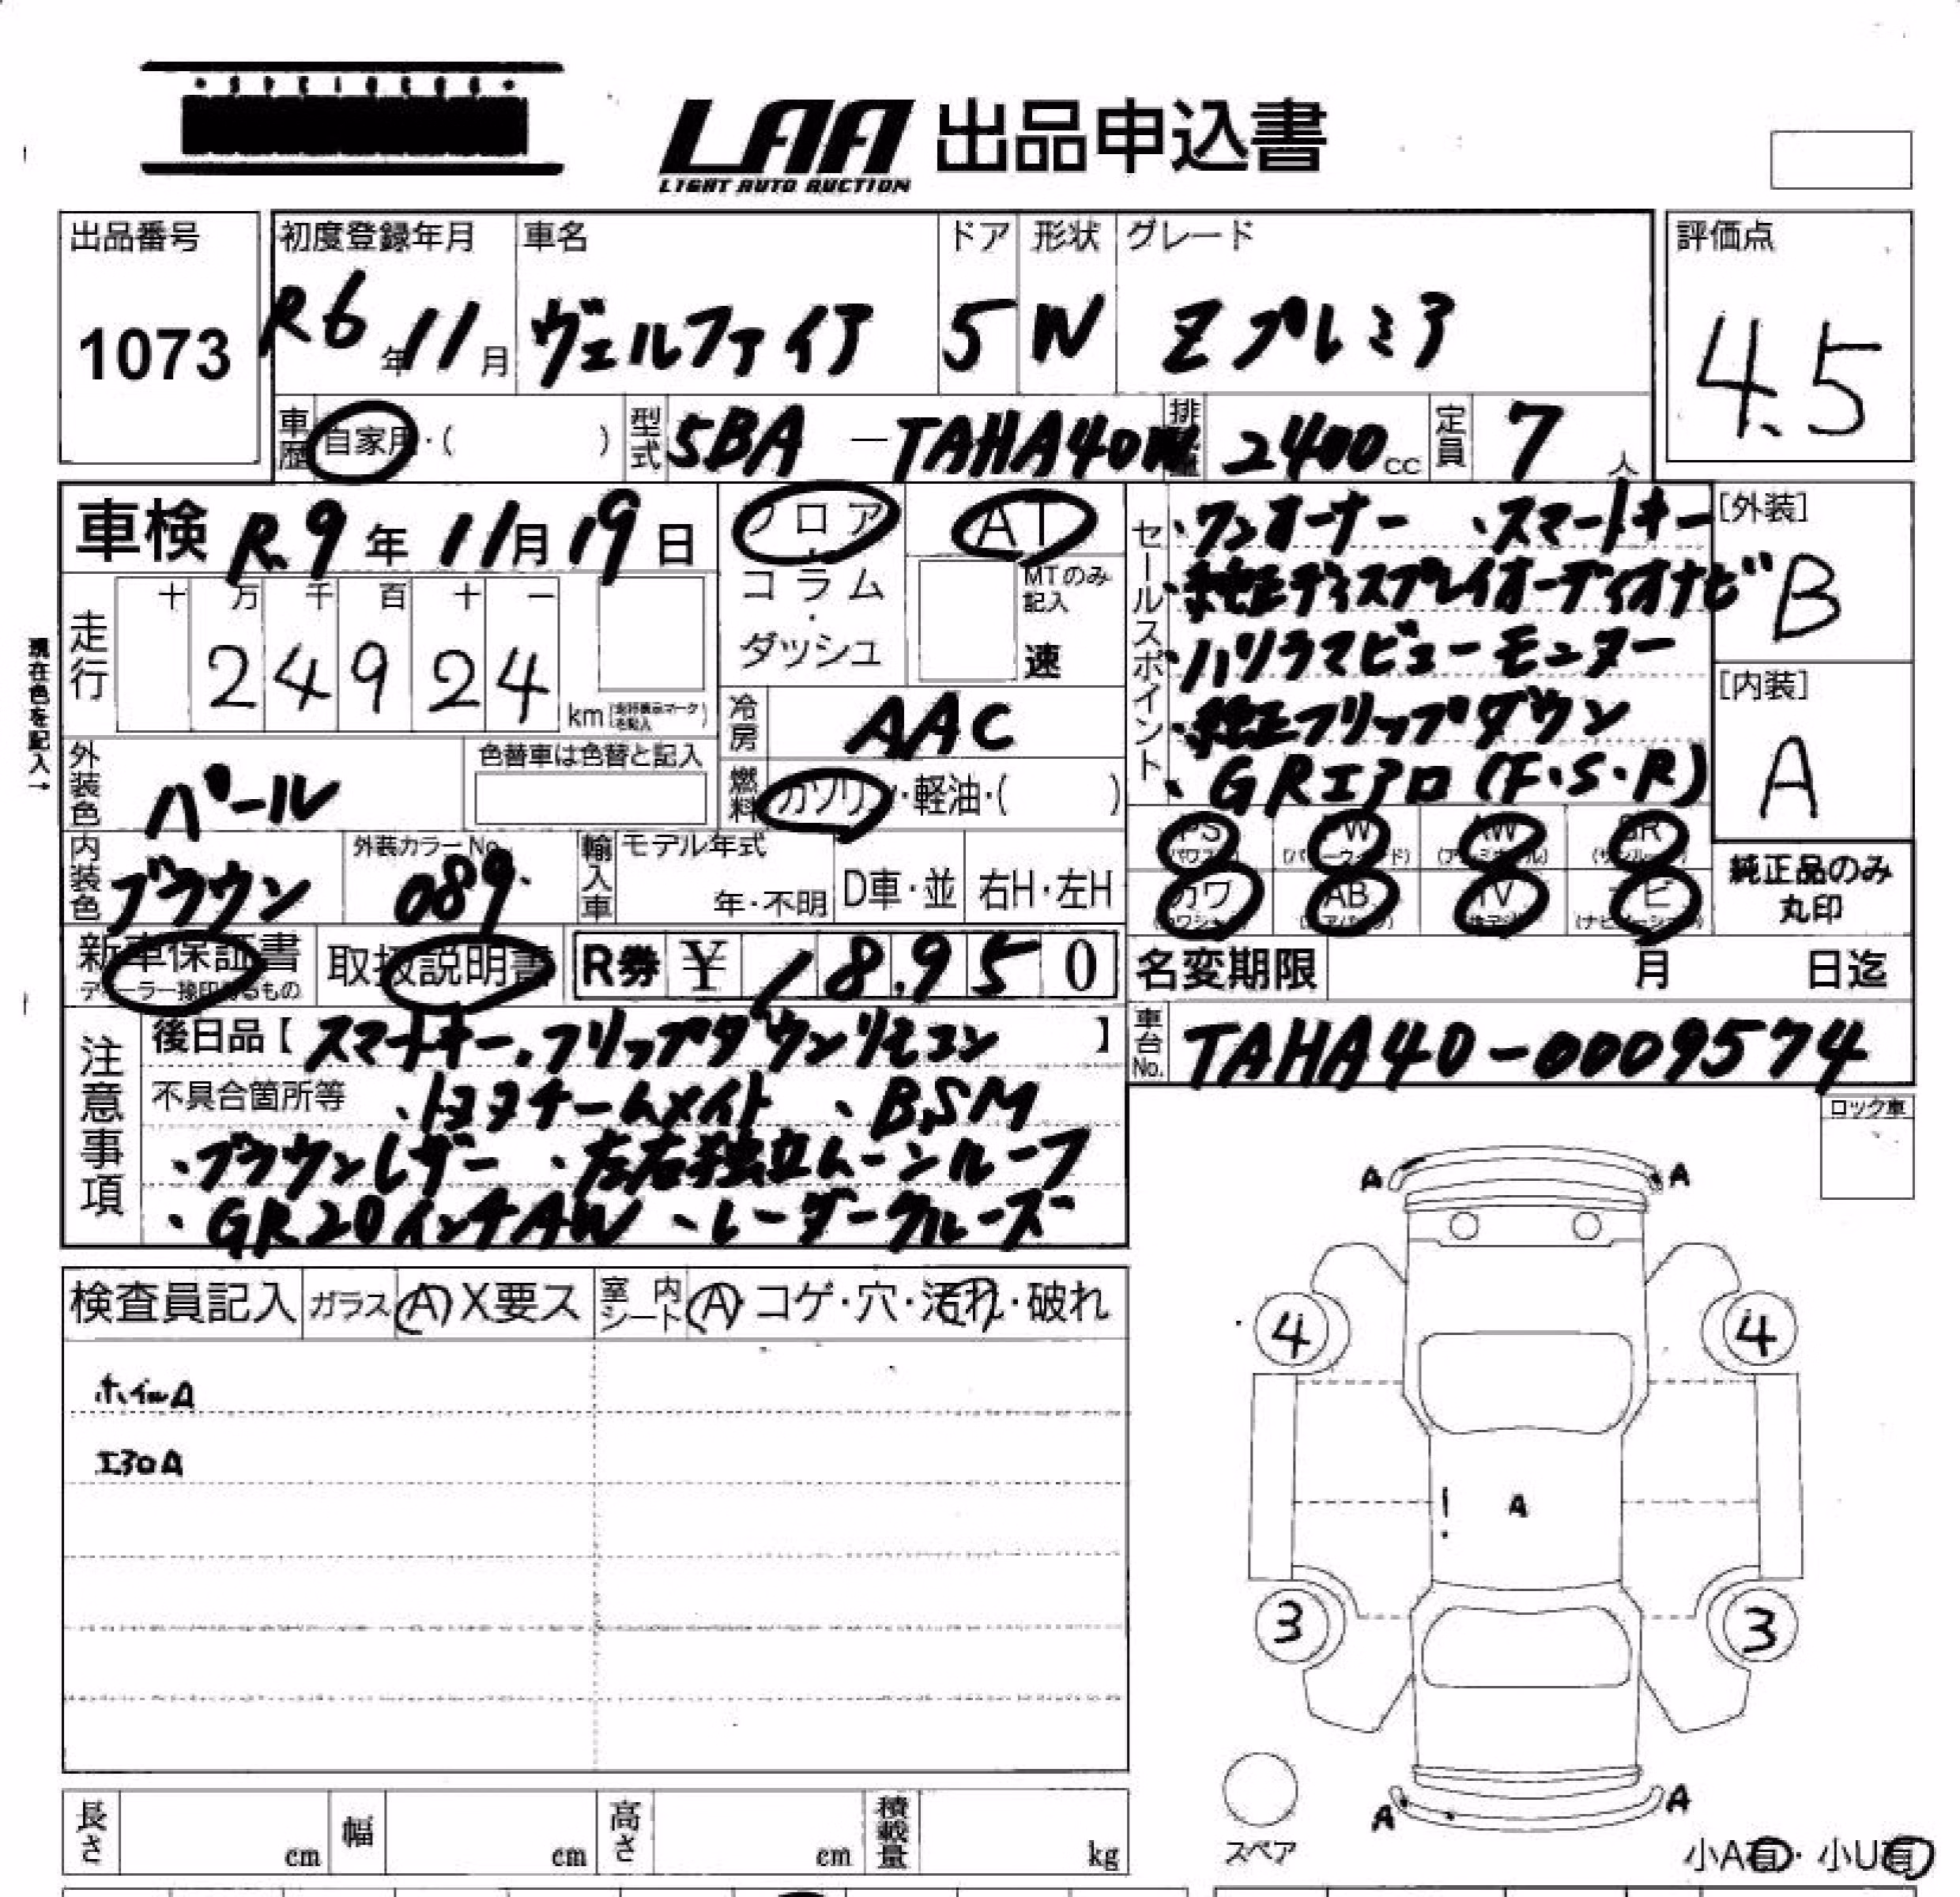 LAA 出品申込書
LIGHT AUTO AUCTION
出品番号
1073
初度登録年月
R6年11月
車名
ヴェルファイア
ドア
5
形状
W
グレード
Zプレミア
評価点
4.5
車歴 自家用・( )
型式 5BA-TAHA40W
排気量 2400cc
定員 7人
車検 R.9年11月19日
フロア・コラム・ダッシュ
AT
MTのみ記入
速
セールスポイント
・ワンオーナー ・スマートキー
・純正ディスプレイオーディオナビ
・パノラマビューモニター
・純正フリップダウン
・GRエアロ(F・S・R)
[外装]
B
[内装]
A
現在色を記入→
走行
十 万 千 百 十 一
24924
km
冷房 AAC
燃料 ガソリン・軽油・( )
外装色 パール
色替車は色替と記入
内装色 ブラウン
外装カラーNo. 089
輸入車
モデル年式
年・不明
D車・並
右H・左H
PS PW AW SR
カワ AB TV ナビ
純正品のみ丸印
新車保証書
取扱説明書
R券 ¥18,950
名変期限 月 日迄
車台No. TAHA40-0009574
注意事項
後日品【スマートキー、フリップダウンリモコン】
不具合箇所等 ・トヨタチームメイト ・BSM
・ブラウンレザー ・左右独立ムーンルーフ
・GR20インチAW ・レーダークルーズ
ロック車
検査員記入
ガラス A X要ス
室内シート A コゲ・穴・汚れ・破れ
ホイルA
エアロA
A A
4 4
A
3 3
A A
スペア
小A有・小U有
長さ cm
幅 cm
高さ cm
積載量 kg